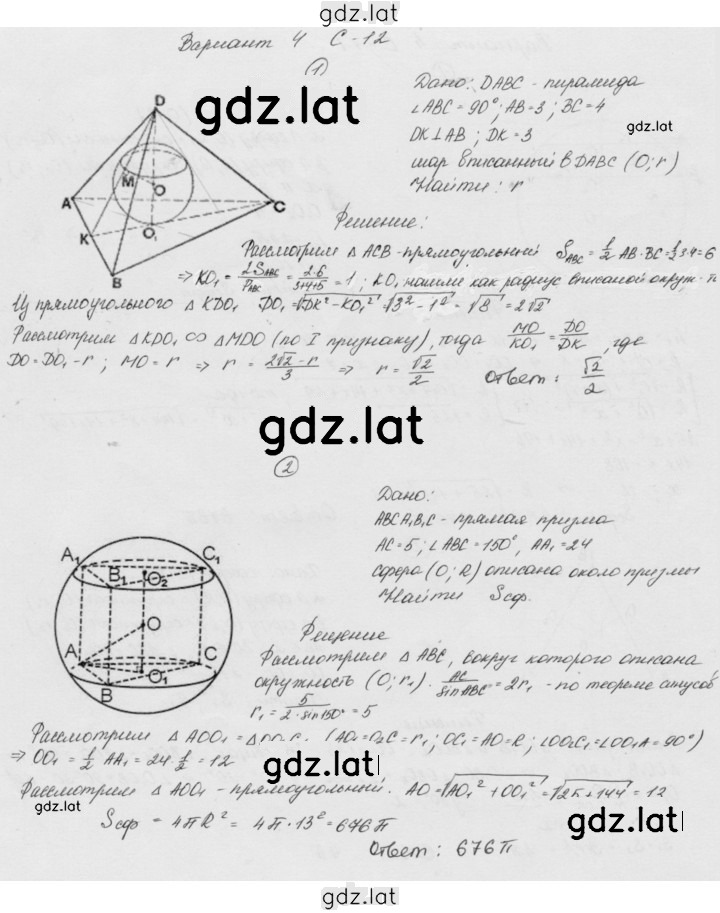 gdz.lat
Вариант 4 С-12
1
gdz.lat
Дано: DABC - пирамида
∠ABC = 90°; AB = 3; BC = 4
DK⊥AB; DK = 3
gdz.lat
шар вписанный в DABC (O; r)
Найти: r
D
M
O
A
C
K
O₁
B
Решение:
Рассмотрим △ ACB - прямоугольный S_ABC = 1/2 AB·BC = 1/2·3·4 = 6
⇒ KO₁ = 2S_ABC/P_ABC = 2·6/3+4+5 = 1; KO₁ нашли как радиус вписаной окруж-
Из прямоугольного △ KDO₁ DO₁ = √DK² - KO₁² = √3² - 1² = √8 = 2√2
Рассмотрим △KDO₁ ∽ △MDO (по I признаку), тогда MO/KO₁ = DO/DK, где
DO = DO₁ - r; MO = r ⇒ r = 2√2 - r/3 ⇒ r = √2/2 Ответ: √2/2
gdz.lat
2
Дано:
ABCA₁B₁C - прямая призма
AC = 5; ∠ABC = 150°, AA₁ = 24
сфера (O; R) описана около призмы
Найти Sсф.
A₁
C₁
B₁
O₂
O
A
C
O₁
B
Решение
Рассмотрим △ ABC, вокруг которого описана
окружность (O; r₁). AC/sin ABC = 2r₁ - по теореме синусов
r₁ = 5/2·sin150° = 5
Рассмотрим △ AOO₁ = (AO₁ = O₂C = r₁; OC₁ = AO = R; ∠OO₂C₁ = ∠OO₁A = 90°)
⇒ OO₁ = 1/2 AA₁ = 24·1/2 = 12
gdz.lat
Рассмотрим △ AOO₁ - прямоугольный. AO = √AO₁² + OO₁² = √25+144 = 12
gdz.lat
Sсф = 4πR² = 4π·13² = 676π
gdz.lat
Ответ: 676π
gdz.lat